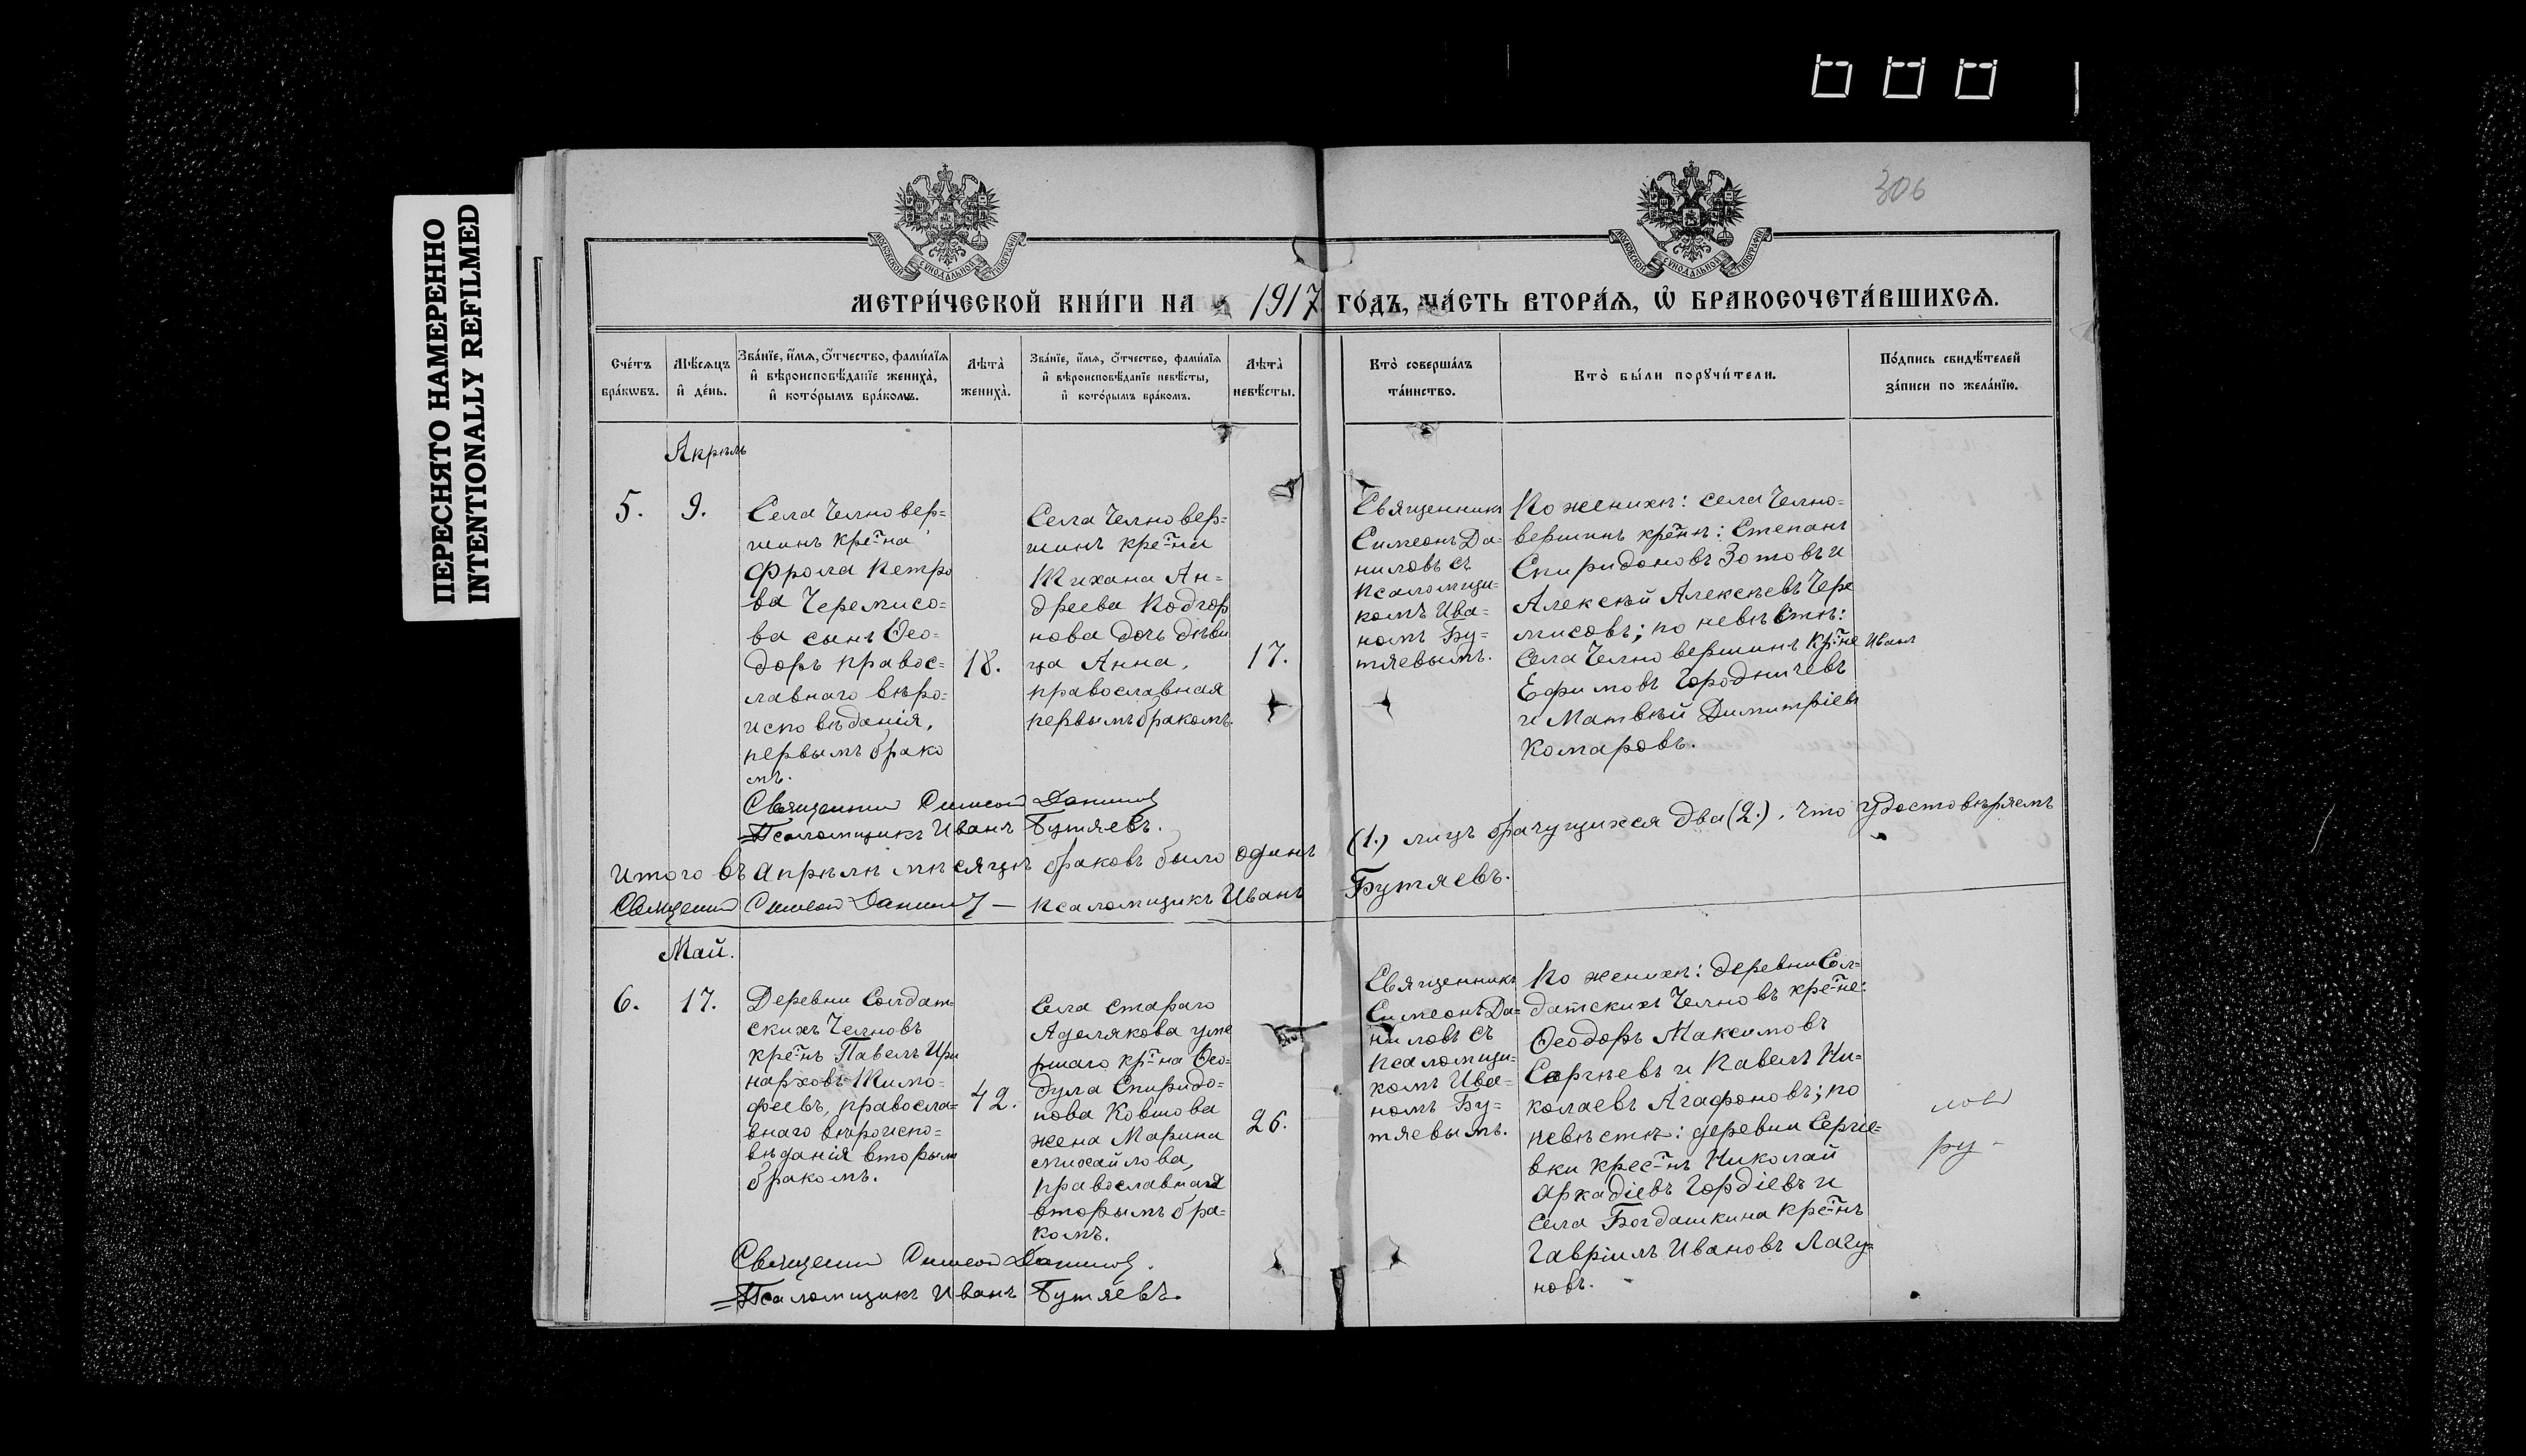 ПЕРЕСНЯТО НАМЕРЕННО
INTENTIONALLY REFILMED
306
МОСКОВСКОЙ СѴНОДАЛЬНОЙ ТИПОГРАФІИ
МОСКОВСКОЙ СѴНОДАЛЬНОЙ ТИПОГРАФІИ
МЕТРИ́ЧЕСКОЙ КНИ́ГИ НА 1917 ГО́ДЪ, ЧА́СТЬ ВТОРА́Ѧ, Ѽ БРАКОСОЧЕТА́ВШИХСѦ.
Сче́тъ
бра́кѡвъ.
Мѣ́сѧцъ
и҆ де́нь.
Зва́нїе, и҆́мѧ, ѻ҆́тчество, фами́лїѧ
и҆ вѣроисповѣ́данїе жениха̀,
и҆ кото́рымъ бра́комъ.
Лѣта̀
жениха̀.
Зва́нїе, и҆́мѧ, ѻ҆́тчество, фами́лїѧ
и҆ вѣроисповѣ́данїе невѣ́сты,
и҆ кото́рымъ бра́комъ.
Лѣта̀
невѣ́сты.
Кто̀ соверша́лъ
та́инство.
Кто̀ бы́ли порꙋчи́тели.
По́дпись свидѣ́телей
за́писи по жела́нїю.
Апрѣль
5.
9.
Села Челновер=
шинъ кре-на
Фрола Петро
ва Черемисо=
ва сынъ Ѳео=
доръ правос=
лавнаго вѣро=
исповѣданія,
первымъ брако
мъ.
18.
Села Челновер=
шинъ кре-на
Тихана Ан=
дреева Подгор
нова дочь дѣви
ца Анна,
православная
первымъ бракомъ.
17.
Священникъ
Симеонъ Да=
ниловъ съ
псаломщи=
комъ Ива=
номъ Бу=
тяевымъ.
По женихѣ: села Челно=
вершинъ кре-нъ: Степанъ
Спиридоновъ Зотовъ и
Алексѣй Алексѣевъ Чере
мисовъ; по невѣстѣ:
села Челновершинъ кр-не Иванъ
Ефимовъ Городничевъ
и Матвѣй Димитріевъ
Комаровъ.
Священникъ Симеонъ Даниловъ
Псаломщикъ Иванъ Бутяевъ.
Итого въ апрѣлѣ мѣсяцѣ браковъ было одинъ (1.) лицъ брачущихся два (2.), что удостовѣряемъ
Священникъ Симеонъ Даниловъ — псаломщикъ Иванъ Бутяевъ.
Май.
6.
17.
Деревни Солдат=
скихъ Челновъ
кре-нъ Павелъ Ири
нарховъ Тимо=
феевъ, правосла=
внаго вѣроиспо=
вѣданія вторым
бракомъ.
42.
Села Стараго
Аделякова уме
ршаго кр-на Ѳео=
дула Спиридо=
нова Ковшова
жена Марина
михайлова,
православная
вторымъ бра=
комъ.
26.
Священникъ
Симеонъ Да=
ниловъ съ
псаломщи=
комъ Ива=
номъ Бу=
тяевымъ.
По женихѣ: деревни Сол=
датскихъ Челновъ кре-не:
Ѳеодоръ Максимовъ
Сергѣевъ и Павелъ Ни=
колаевъ Агафоновъ; по
невѣстѣ: деревни Сергіе=
вки крес-нъ Николай
Аркадіевъ Гордіевъ и
села Богдашкина кре-нъ
Гавріилъ Ивановъ Лагу=
новъ.
Священникъ Симеонъ Даниловъ.
Псаломщикъ Иванъ Бутяевъ.